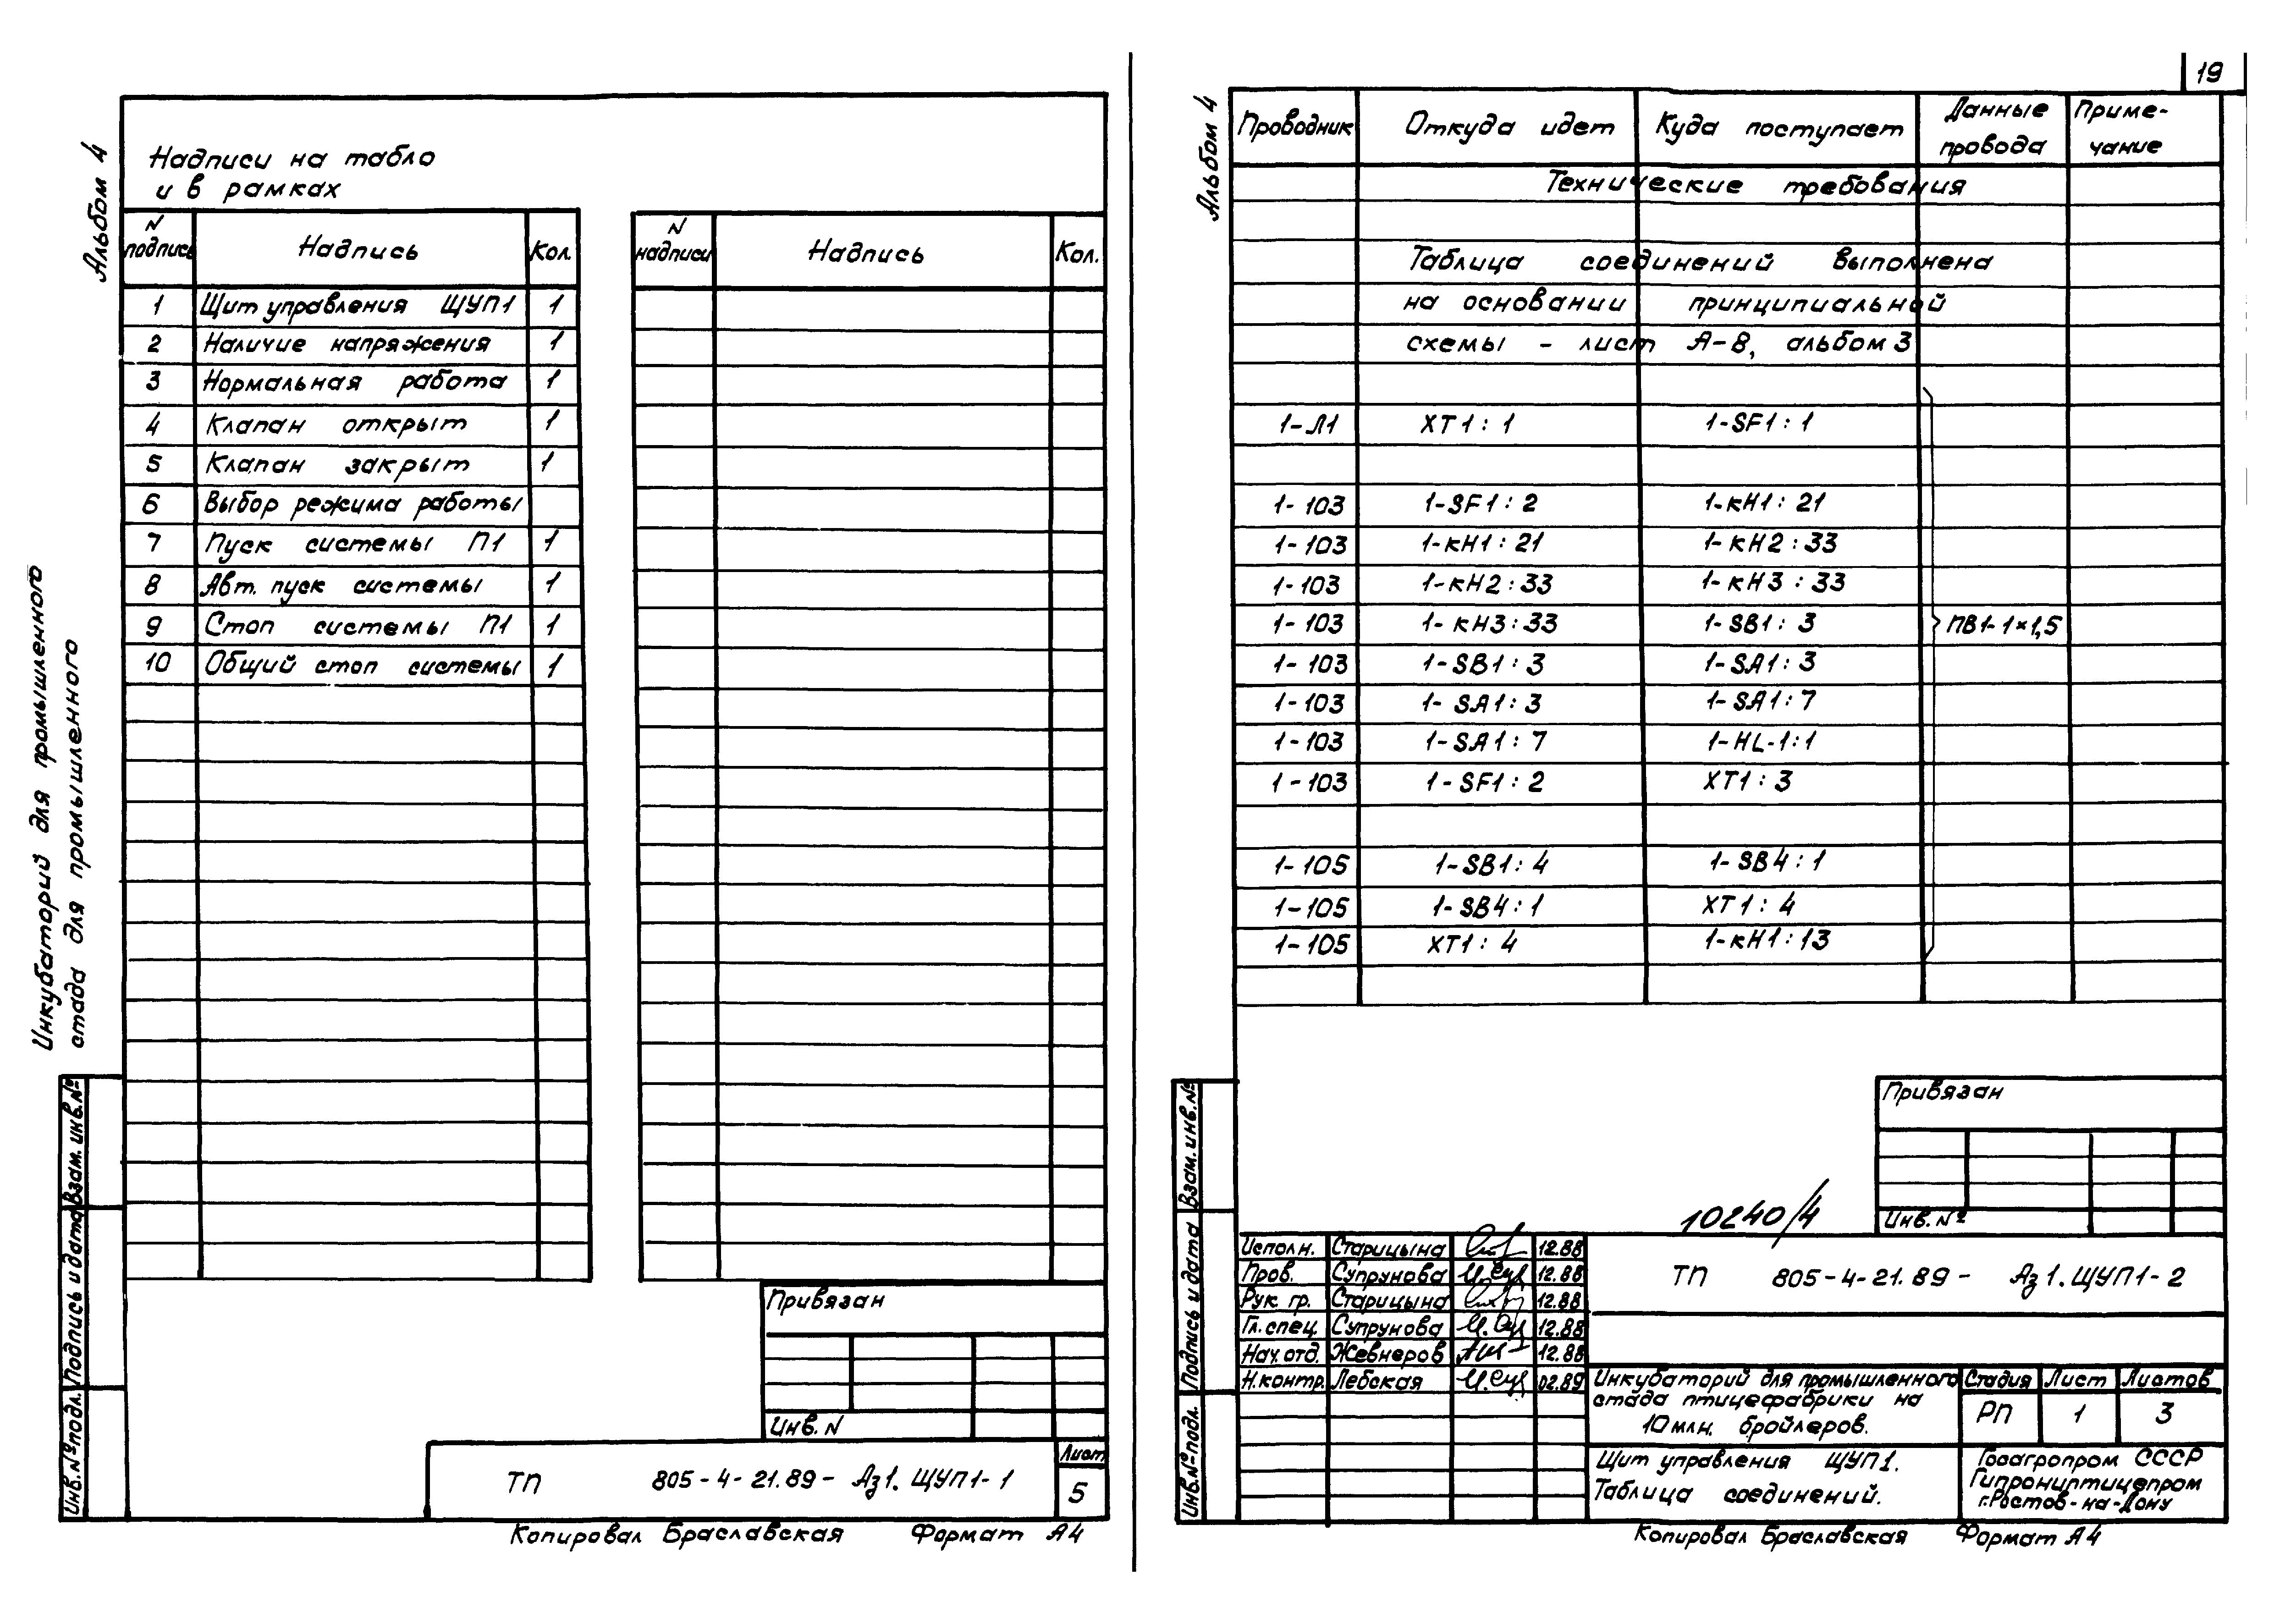 Альбом 4
Надписи на табло
и в рамках
N подпись Надпись Кол. N надписи Надпись Кол.
1 Щит управления ЩУП1 1
2 Наличие напряжения 1
3 Нормальная работа 1
4 Клапан открыт 1
5 Клапан закрыт 1
6 Выбор режима работы
7 Пуск системы П1 1
8 Авт. пуск системы 1
9 Стоп системы П1 1
10 Общий стоп системы 1
Инкубаторий для промышленного
стада для промышленного
Взам. инв.№
Подпись и дата
Инв.№подл.
Привязан
Инв. N
ТП 805-4-21.89- Аз1. ЩУП1-1
Лист
5
Копировал Браславская Формат А4
19
Альбом 4
Проводник Откуда идет Куда поступает Данные провода Приме-чание
Технические требования
Таблица соединений выполнена
на основании принципиальной
схемы - лист А-8, альбом 3
1-Л1 ХТ1:1 1-SF1:1
1-103 1-SF1:2 1-кН1:21
1-103 1-кН1:21 1-кН2:33
1-103 1-кН2:33 1-кН3:33
1-103 1-кН3:33 1-SB1:3 ПВ1-1×1,5
1-103 1-SB1:3 1-SA1:3
1-103 1-SA1:3 1-SA1:7
1-103 1-SA1:7 1-HL-1:1
1-103 1-SF1:2 ХТ1:3
1-105 1-SB1:4 1-SB4:1
1-105 1-SB4:1 ХТ1:4
1-105 ХТ1:4 1-кН1:13
Взам. инв.№
Подпись и дата
Инв.№подл.
Привязан
Инв. №
10240/4
Исполн. Старицына 12.88
Пров. Супрунова 12.88
Рук гр. Старицына 12.88
Гл. спец. Супрунова 12.88
Нач. отд. Жевнеров 12.88
Н.контр. Лебская 02.89
ТП 805-4-21.89- Аз1. ЩУП1-2
Инкубаторий для промышленного
стада птицефабрики на
10 млн. бройлеров.
Стадия Лист Листов
РП 1 3
Щит управления ЩУП1.
Таблица соединений.
Госагропром СССР
Гипрониптицепром
г.Ростов-на-Дону
Копировал Браславская Формат А4